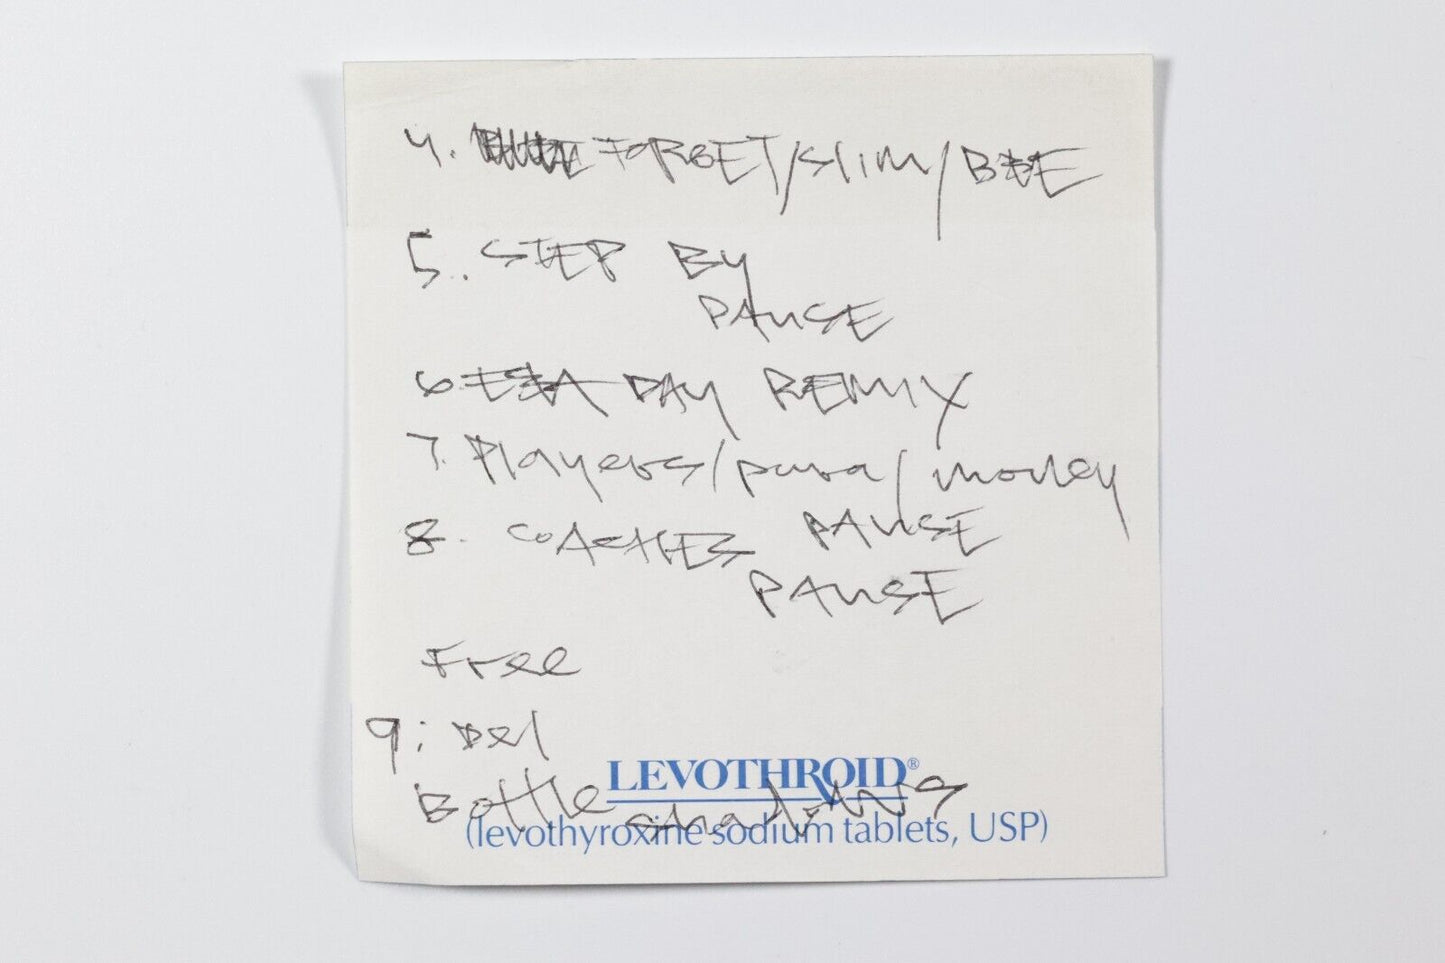 4. FORGET/slim/BEE
5. STEP BY
PAUSE
6. DAY REMIX
7. Players/pura/money
8. COACHES PAUSE
PAUSE
Free
9: Del
LEVOTHROID®
Bottle
(levothyroxine sodium tablets, USP)